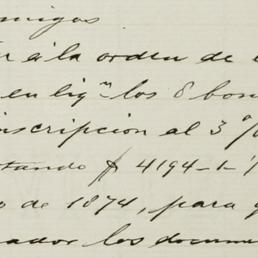 amigos
á la orden de
en liqn los 8 bon
inscripcion al 3 %
4194-1-
de 1874, para
ador los docum